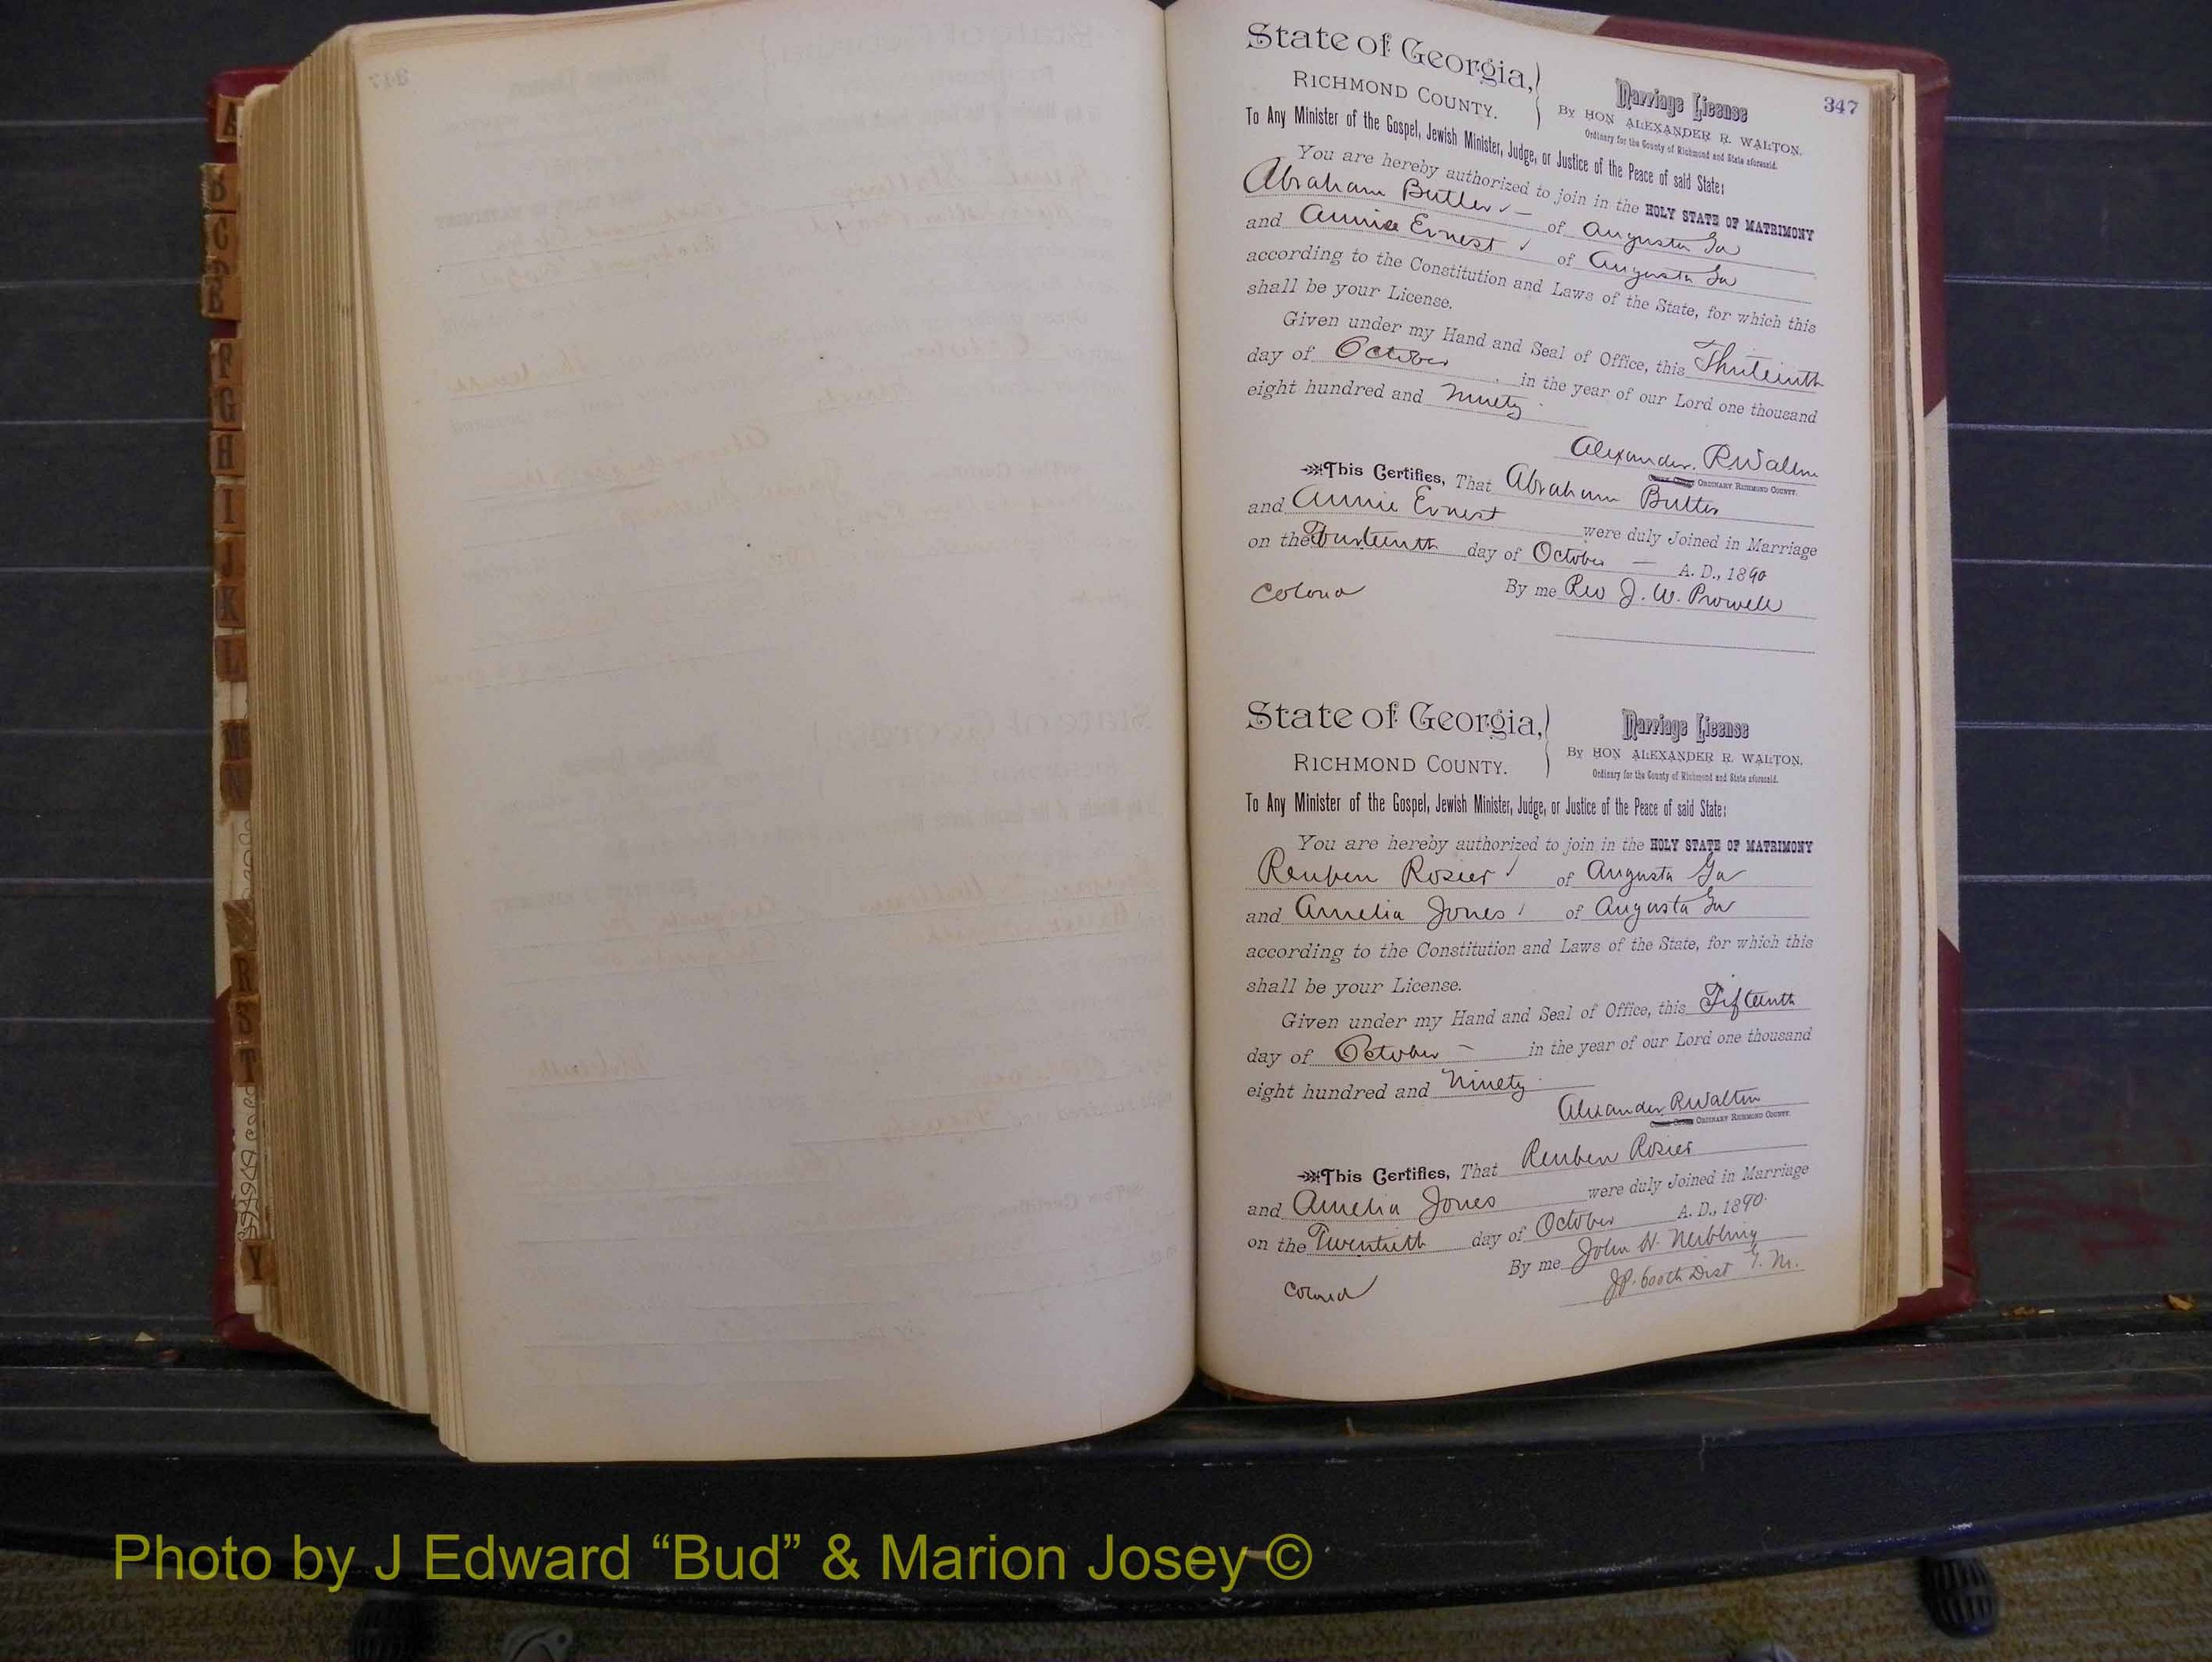 347
State of Georgia,
RICHMOND COUNTY.
Marriage License
By HON ALEXANDER R. WALTON.
Ordinary for the County of Richmond and State aforesaid.
To Any Minister of the Gospel, Jewish Minister, Judge, or Justice of the Peace of said State:
You are hereby authorized to join in the HOLY STATE OF MATRIMONY
Abraham Butler of Augusta Ga
and Annie Ernest of Augusta Ga
according to the Constitution and Laws of the State, for which this
shall be your License.
Given under my Hand and Seal of Office, this Thirteenth
day of October in the year of our Lord one thousand
eight hundred and Ninety
Alexander. R Walton
ORDINARY RICHMOND COUNTY.
This Certifies, That Abraham Butler
and Annie Ernest were duly Joined in Marriage
on the day of October A. D., 1890
Colored By me Rev J. W. Prowell
State of Georgia,
RICHMOND COUNTY.
Marriage License
By HON ALEXANDER R. WALTON.
Ordinary for the County of Richmond and State aforesaid.
To Any Minister of the Gospel, Jewish Minister, Judge, or Justice of the Peace of said State:
You are hereby authorized to join in the HOLY STATE OF MATRIMONY
Reuben Rosier of Augusta Ga
and Amelia Jones of Augusta Ga
according to the Constitution and Laws of the State, for which this
shall be your License.
Given under my Hand and Seal of Office, this Fifteenth
day of October in the year of our Lord one thousand
eight hundred and Ninety
Alexander R Walton
ORDINARY RICHMOND COUNTY.
This Certifies, That Reuben Rosier
and Amelia Jones were duly Joined in Marriage
on the Twentieth day of October A. D., 1890.
By me John N. Neibling
Colored JP. 600th Dist G. M.
A
B
C
F
G
H
I
J
K
L
M
N
R
S
T
Y
Photo by J Edward “Bud” & Marion Josey ©